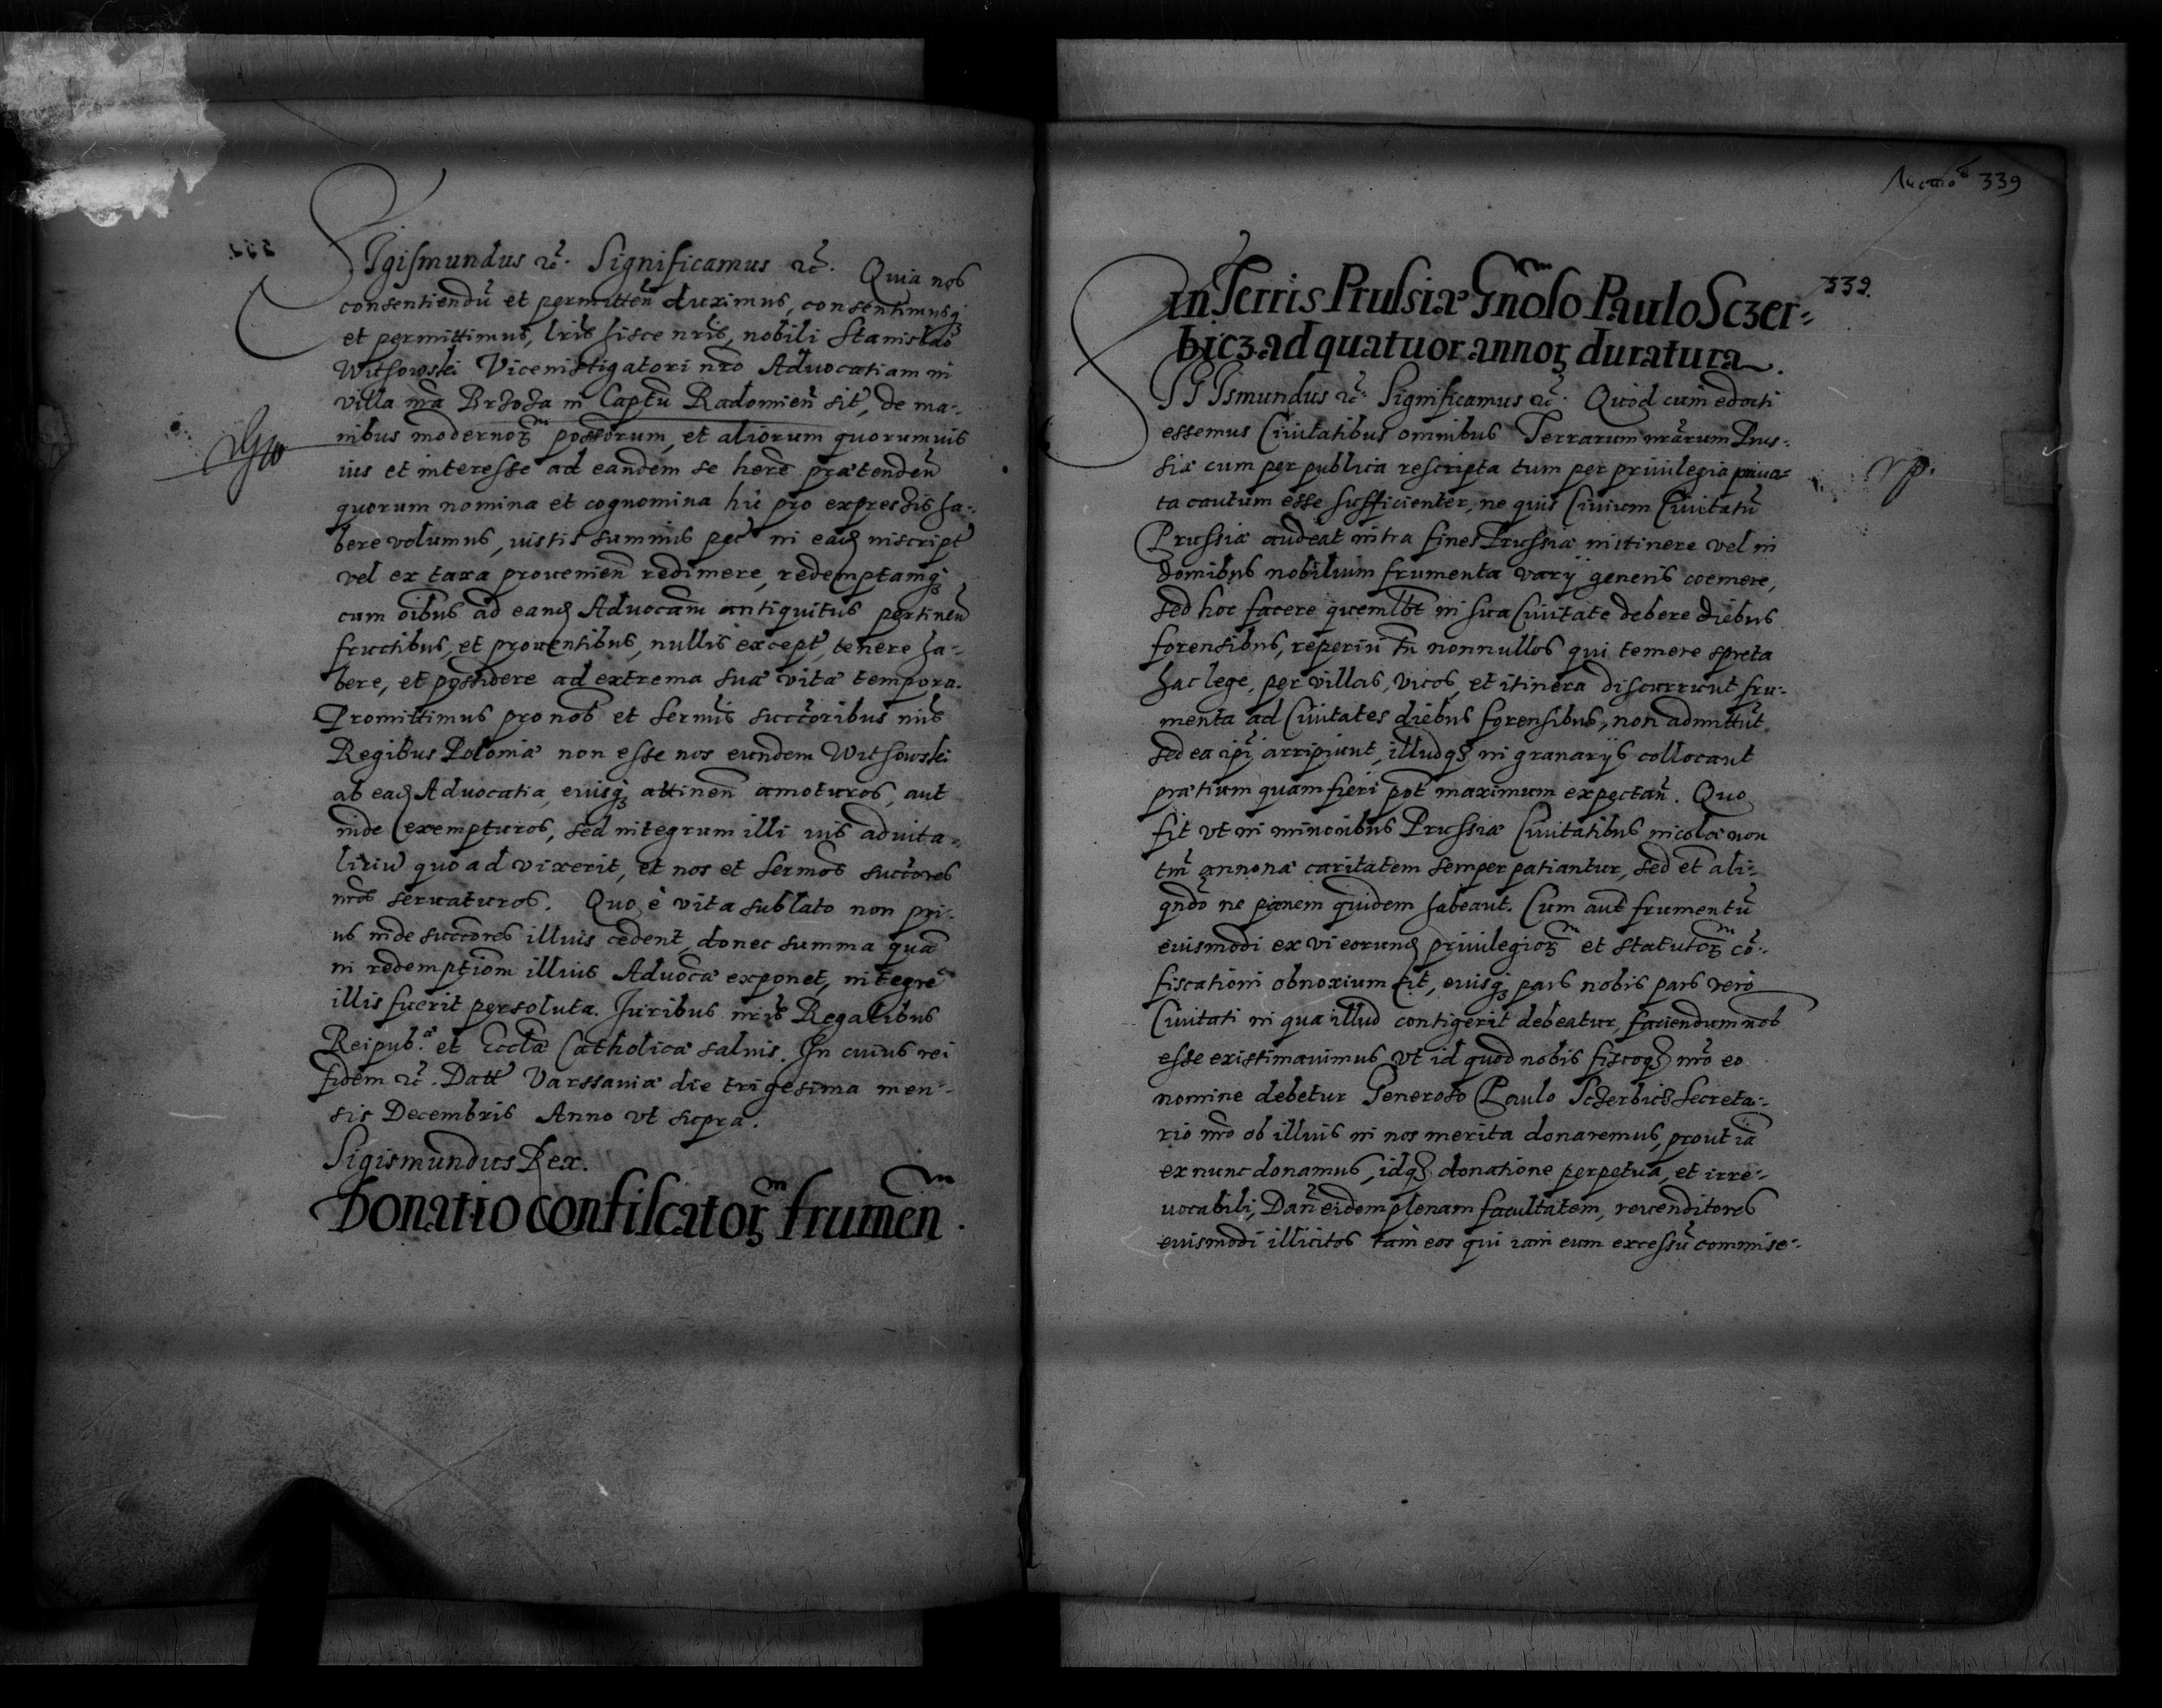 Sigismundus etc. Significamus etc. Quia nos
consentiendū et permitteñ duximus, consentimusq̃
et permittimus, lris hisce nris, nobili Stanislao
Witkowski Viceinstigatori nro Advocatiam in
villa nra Brzoza in Captu Radomien̄ sit, de ma-
nibus modernor̃m possorum, et aliorum quorumuis
ius et interesse ad eandem se here prætenden̄
quorum nomina et cognomina hic pro expressis ha-
bere volumus, iustis summis per in ead inscript
vel ex taxa provenien̄ redimere, redemptamq̃
cum oibus ad eand Advocam antiquitus pertinen̄
fructibus, et proventibus, nullis except, tenere ha-
bere, et possidere ad extrema suæ vitæ tempora.
Promittimus pro nob et Sermis succoribus nris
Regibus Poloniæ non esse nos eundem Witkowski
ab ead Advocatia, eiusq̃ attinen̄ amoturos, aut
inde exempturos, sed integrum illi ius advita-
litiū quoad vixerit, et nos et Sermos succores
nros servaturos. Quo è vita sublato non pri-
us inde succores illius cedent, donec summa quā
in redemptiom illius Advocæ exponet, integrè
illis fuerit persoluta. Juribus nris Regalibus
Reipub.æ et Ecclæ Catholicæ salvis. In cuius rei
fidem etc. Datt Varssaviæ die trigesima men-
sis Decembris Anno vt supra.
Sigismundus Rex.
Donatio confiscator̃m frumen̄m.
Листов 339
339.
in Terris Prussiæ Gnoso Paulo Sczer-
bicz ad quatuor annor̃ duratura.
SIGIsmundus etc. Significamus etc. Quòd cum edocti
essemus Civitatibus omnibus Terrarum nrarum Prus-
siæ cum per publica rescripta tum per privilegia priva-
ta cautum esse sufficienter, ne quis Civium Civitatū
Prussiæ audeat intra fines Prussiæ in itinere vel in
domibus nobilium frumenta varij generis coemere,
sed hoc facere quemlbt in sua Civitate debere diebus
forensibus, reperiri tn nonnullos qui temere spreta
hac lege, per villas, vicos, et itinera discurrunt fru-
menta ad Civitates diebus forensibus, non admittūt
sed ea ipi arripiunt, illudq̃ in granarijs collocant
prætium quam fieri pot maximum expectan̄. Quo
fit vt in minoribus Prussiæ Civitatibus incolæ non
tm annonæ caritatem semper patiantur, sed et ali-
qndo ne panem quidem habeant. Cum aut frumentū
eiusmodi ex vi eorund privilegior̃m et statutor̃m cō-
fiscationi obnoxium sit, eiusq̃ pars nobis pars verò
Civitati in qua illud contigerit debeatur, faciendum nob
esse existimavimus vt id quod nobis fiscoq̃ nro eo
nomine debetur Generoso Paulo Sczerbicz Secreta-
rio nro ob illius in nos merita donaremus, prout iā
ex nunc donamus, idq̃ donatione perpetua, et irre-
vocabili, Dan̄ eidem plenam facultatem, revenditores
eiusmodi illicitos tàm eos qui iam eum excessū commise-